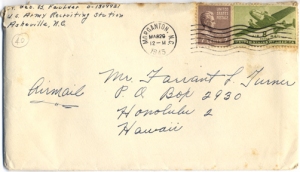 U.S. Army Recruiting Station
Asheville, N.C.
MORGANTON, N.C.
MAR 29
12-M
1945
Airmail
Mr. Farrant L. Turner
P.O. Box 2930
Honolulu 2
Hawaii